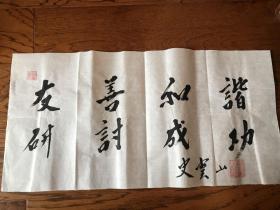 友善和諧
研討成功
雲山